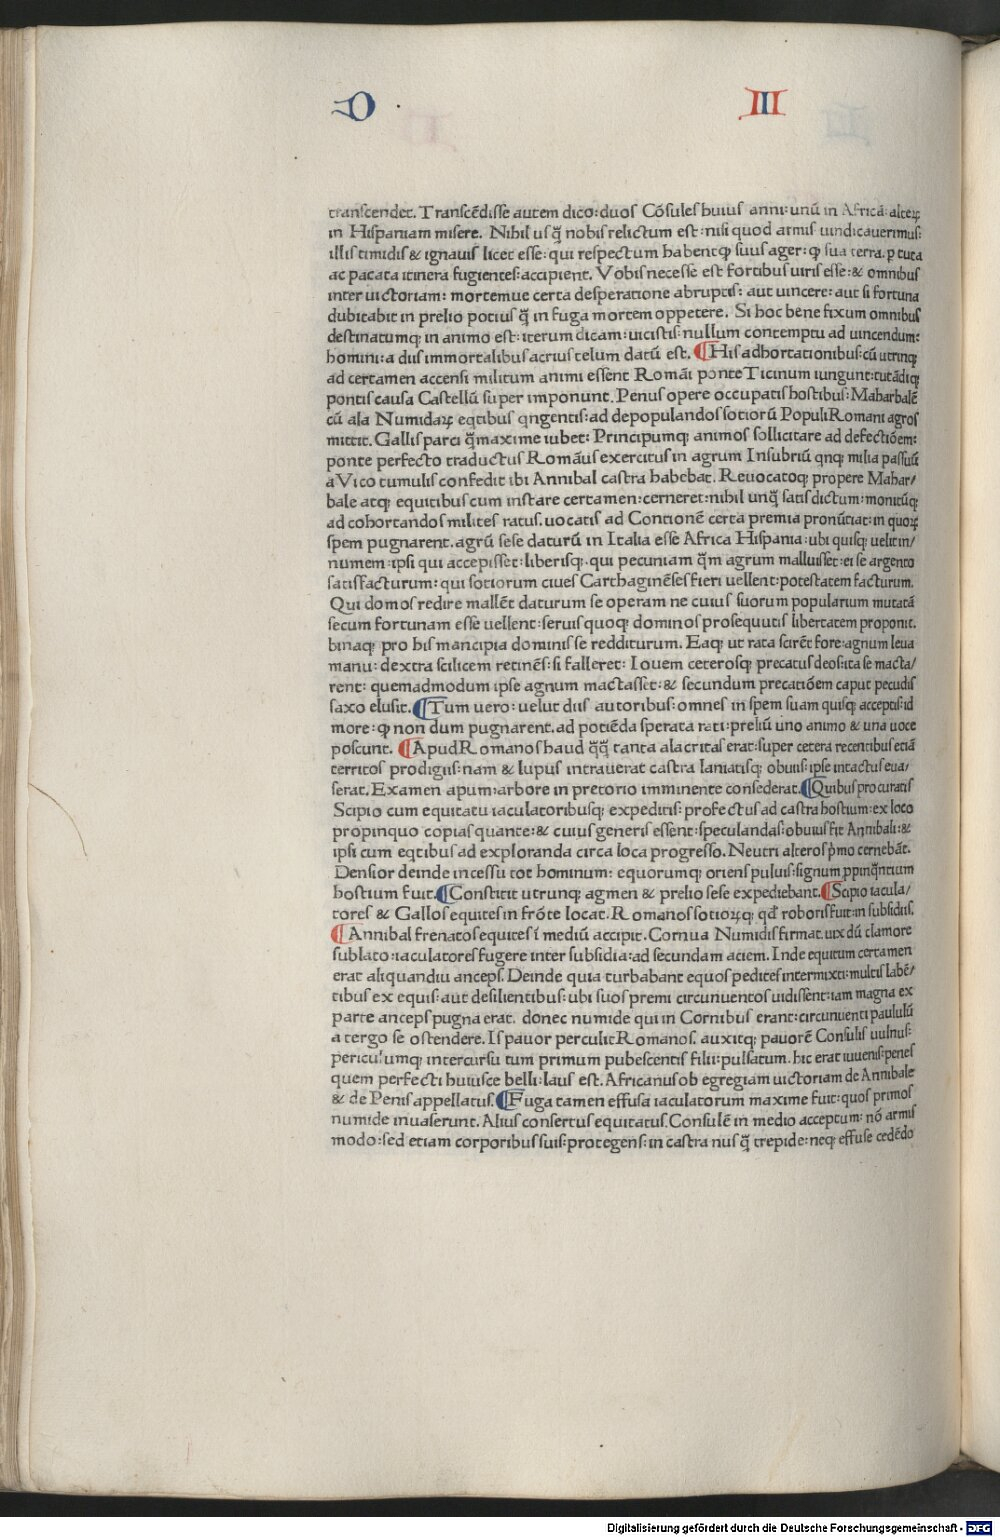 D III
transcendet. Transcēdisse autem dico: duos Cōsules huius anni: unū in Africā: alteꝝ
in Hispaniam misere. Nihil usq̄ nobis relictum est: nisi quod armis uindicauerimus:
illis timidis & ignauis licet esse: qui respectum habent: ꝙ suus ager: ꝙ sua terra. p tuta
ac pacata itinera fugientes: accipient. Vobis necesse est fortibus uiris esse: & omnibus
inter uictoriam: mortemue certa desperatione abruptis: aut uincere: aut si fortuna
dubitabit in prelio potius q̄ in fuga mortem oppetere. Si hoc bene fixum omnibus
destinatumq; in animo est: iterum dicam: uicistis: nullum contemptu ad uincendum:
homini: a diis immortalibus acrius telum datū est. ¶ His adhortationibus: cū utrinq;
ad certamen accensi militum animi essent Romāi ponte Ticinum iungunt: tutādiq;
pontis causa Castellū super imponunt. Penus opere occupatis hostibus: Maharbalē
cū ala Numidaꝝ eqtibus qngentis: ad depopulandos sotiorū Populi Romani agros
mittit. Gallis parci q̄maxime iubet: Principumq; animos sollicitare ad defectiōem:
ponte perfecto traductus Romāus exercitus in agrum Insubriū qnq; milia passuū
a Vico tumulis consedit ibi Annibal castra habebat. Reuocatoq; propere Mahar/
bale atq; equitibus cum instare certamen: cerneret: nihil unq̄ satis dictum: monitūq;
ad cohortandos milites ratus. uocatis ad Contionē certa premia pronūtiat: in quoꝝ
spem pugnarent. agrū sese daturū in Italia esse Africa Hispania: ubi quisq; uelit in/
numem: ipsi qui accepisset: liberisq;. qui pecuniam q̄m agrum malluisset: ei se argento
satisfacturum: qui sotiorum ciues Carthaginēses fieri uellent: potestatem facturum.
Qui domos redire mallēt daturum se operam ne cuius suorum popularium mutatā
secum fortunam esse uellent: seruis quoq; dominos prosequutis libertatem proponit.
binaq; pro his mancipia dominis se redditurum. Eaq; ut rata scirēt fore: agnum leua
manu: dextra scilicem retinēs: si falleret: Iouem ceterosq; precatus deos: ita se macta/
rent: quemadmodum ipse agnum mactasset: & secundum precatiōem caput pecudis
saxo elusit. ¶ Tum uero: uelut diis autoribus: omnes in spem suam quisq; acceptis: id
more: ꝙ non dum pugnarent. ad potiēda sperata rati: preliū uno animo & una uoce
poscunt. ¶ Apud Romanos haud q̄q̄ tanta alacritas erat: super cetera recentibus etiā
territos prodigiis: nam & lupus intrauerat castra laniatisq; obuiis: ipse intactus eua/
serat. Examen apum: arbore in pretorio imminente consederat. ¶ Quibus procuratis
Scipio cum equitatu iaculatoribusq; expeditis: profectus ad castra hostium: ex loco
propinquo copias quante: & cuius generis essent: speculandas: obuius fit Annibali: &
ipsi cum eqtibus ad exploranda circa loca progresso. Neutri alteros p̄mo cernebāt.
Densior deinde incessu tot hominum: equorumq; oriens puluis: signum ꝓpinq̄ntium
hostium fuit. ¶ Constitit utrunq; agmen & prelio sese expediebant. ¶ Scipio iacula/
tores & Gallos equites in frōte locat. Romanos sotioꝝq; qd̄ roboris fuit: in subsidiis.
¶ Annibal frenatos equites ī mediū accipit. Cornua Numidis firmat. uix dū clamore
sublato: iaculatores fugere inter subsidia: ad secundam aciem. Inde equitum certamen
erat aliquandiu anceps. Deinde quia turbabant equos pedites intermixti: multis labē/
tibus ex equis: aut desilientibus: ubi suos premi circunuentos uidissent: iam magna ex
parte anceps pugna erat. donec numide qui in Cornibus erant: circunuenti paululū
a tergo se ostendere. Is pauor perculit Romanos. auxitq; pauorē Consulis uulnus:
periculumq; intercursu tum primum pubescentis filii: pulsatum. hic erat iuuenis: penes
quem perfecti huiusce belli: laus est. Africanus ob egregiam uictoriam de Annibale
& de Penis appellatus. ¶ Fuga tamen effusa iaculatorum maxime fuit: quos primos
numide inuaserunt. Alius consertus equitatus. Consulē in medio acceptum: nō armis
modo: sed etiam corporibus suis: protegens: in castra nus q̄ trepide: neq; effuse cedēdo
Digitalisierung gefördert durch die Deutsche Forschungsgemeinschaft - DFG